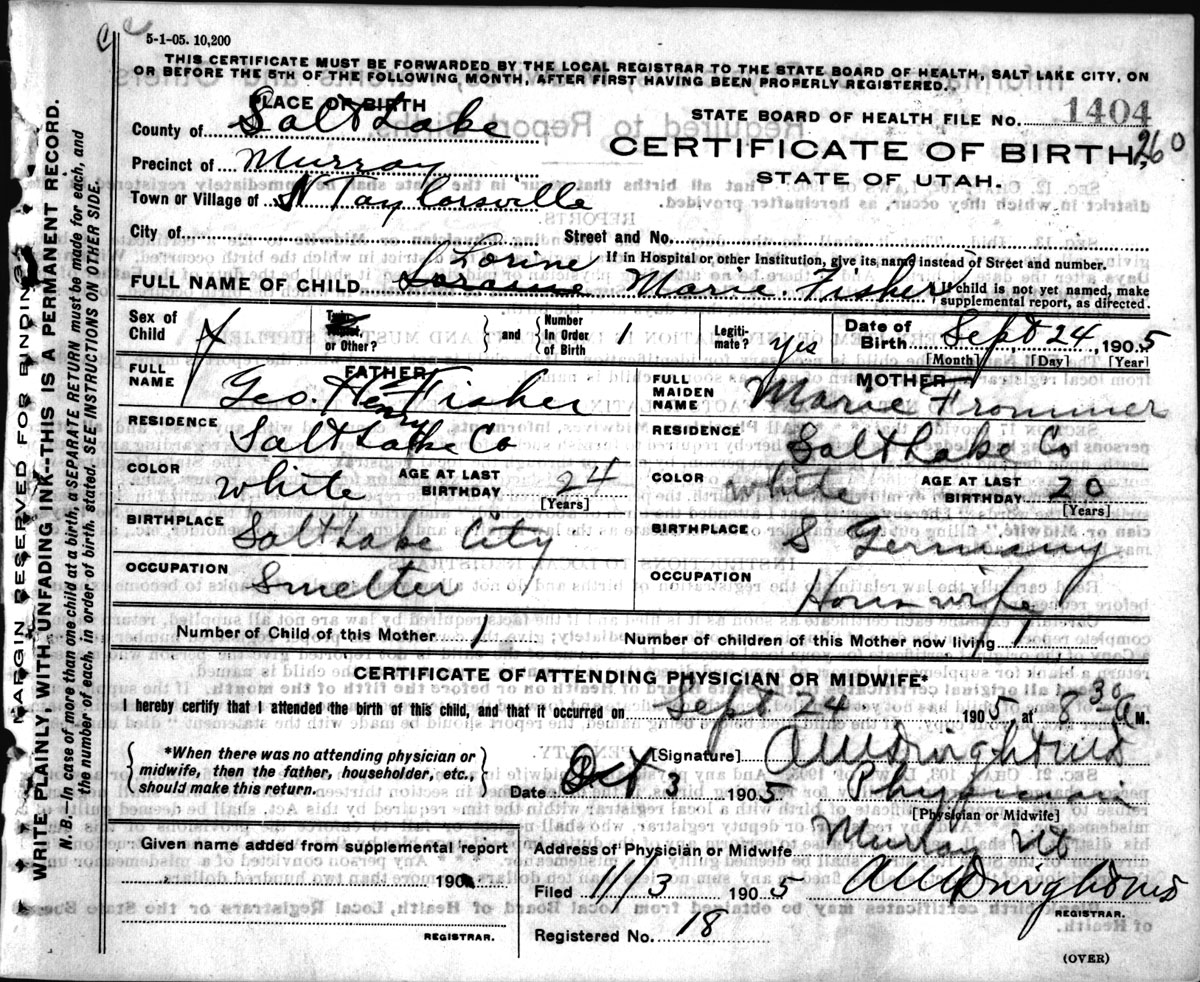 5-1-05. 10,200
THIS CERTIFICATE MUST BE FORWARDED BY THE LOCAL REGISTRAR TO THE STATE BOARD OF HEALTH, SALT LAKE CITY, ON
OR BEFORE THE 5TH OF THE FOLLOWING MONTH, AFTER FIRST HAVING BEEN PROPERLY REGISTERED.
PLACE OF BIRTH
STATE BOARD OF HEALTH FILE No. 1404
260
County of Salt Lake
CERTIFICATE OF BIRTH,
Precinct of Murray
STATE OF UTAH.
Town or Village of N Taylorsville
City of Street and No.
Lorine
If in Hospital or other Institution, give its name instead of Street and number.
FULL NAME OF CHILD Loraine Marie. Fisher
If child is not yet named, make
supplemental report, as directed.
Sex of Child f
Twin, Triplet, or Other? and Number in Order of Birth 1
Legitimate? yes
Date of Birth Sept 24, 1905
[Month] [Day] [Year]
FATHER
FULL NAME Geo. Henry Fisher
RESIDENCE Salt Lake Co
COLOR white AGE AT LAST BIRTHDAY 24
[Years]
BIRTHPLACE Salt Lake City
OCCUPATION Smelter
MOTHER
FULL MAIDEN NAME Marie Frommer
RESIDENCE Salt Lake Co
COLOR white AGE AT LAST BIRTHDAY 20
[Years]
BIRTHPLACE S Germany
OCCUPATION Houswife
Number of Child of this Mother 1 Number of children of this Mother now living 1
CERTIFICATE OF ATTENDING PHYSICIAN OR MIDWIFE*
I hereby certify that I attended the birth of this child, and that it occurred on Sept 24 1905, at 8 30 A M.
*When there was no attending physician or
midwife, then the father, householder, etc.,
should make this return.
[Signature]
Date Oct 3 1905 Physician
[Physician or Midwife]
Given name added from supplemental report
190
REGISTRAR.
Address of Physician or Midwife Murray Ut
Filed 11/3 1905
REGISTRAR.
Registered No. 18
(OVER)
MARGIN RESERVED FOR BINDING
WRITE PLAINLY, WITH UNFADING INK--THIS IS A PERMANENT RECORD.
N. B.—In case of more than one child at a birth, a SEPARATE RETURN must be made for each, and
the number of each, in order of birth, stated. SEE INSTRUCTIONS ON OTHER SIDE.